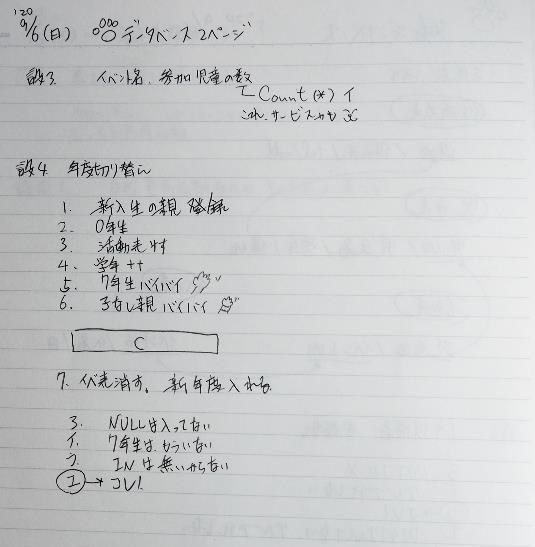 '20
9/6(日) データベース 2ページ
設3. イベント名、参加児童の数
エ Count(*) イ
これ、サービスかも
設4. 年度切り替え
1. 新入生の親 登録
2. 0年生
3. 活動も
4. 学年++
5. 7年生バイバイ
6. 子なし親バイバイ
C
7. イベ表消す。新年度入れる
NULLは入ってない
イ. 7年生は、もういない
ウ. INは無いからない
エ→コレ!